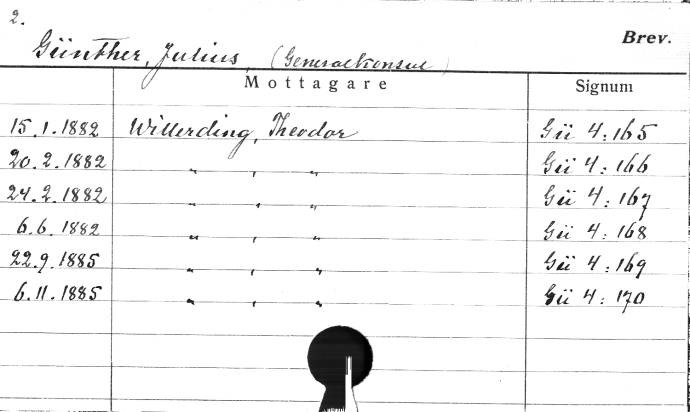 2.
Brev.
Günther, Julius, (Generalkonsul)
Mottagare Signum
15.1.1882 Willerding, Theodor Gü 4:165
20.2.1882 " , " Gü 4:166
24.2.1882 " , " Gü 4:167
6.6.1882 " , " Gü 4:168
22.9.1885 " , " Gü 4:169
6.11.1885 " , " Gü 4:170